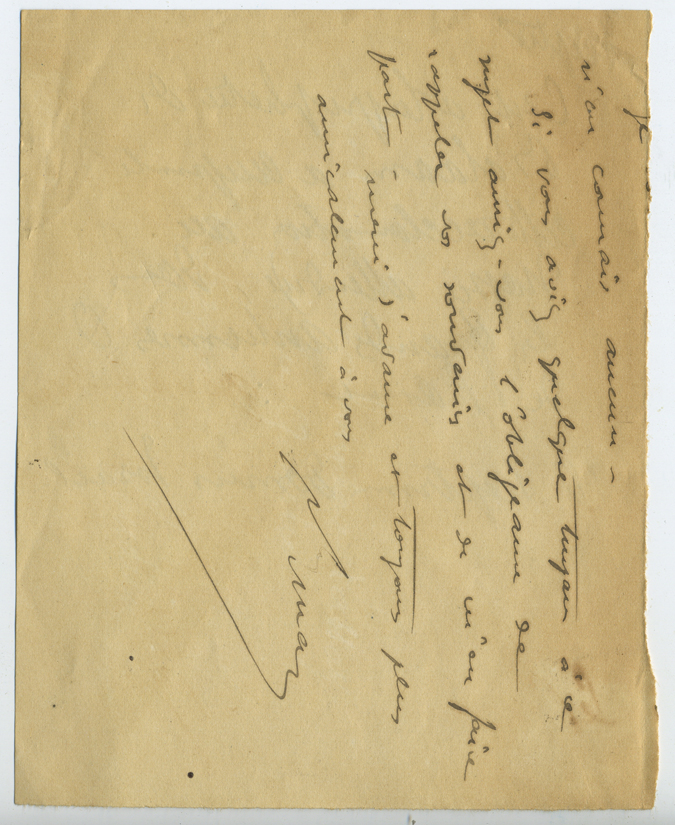 Je
n'en connais aucun -
Si vous aviez quelque tuyau à ce
sujet auriez-vous l'obligeance de
rappeler vos souvenirs et de m'en faire
part - merci d'avance et toujours plus
amicalement à vous